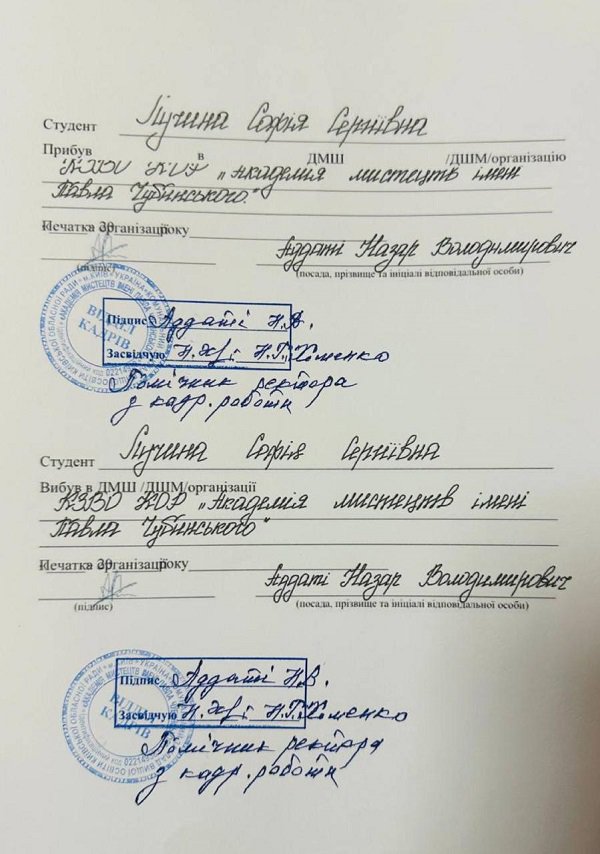 Студент Лучина Софія Сергіївна
Прибув в ДМШ /ДШМ/організацію
КЗВО КОР „Академия мистецтв імені
Павла Чубинського"
Печатка організації року
Аддаті Назар Володимирович
(підпис) (посада, прізвище та ініціалі відповідальної особи)
ВІДДІЛ
КАДРІВ
Підпис Аддаті Н.В.
Засвідчую Н.Г. Хоменко
Помічник ректора
з кадр. роботи
Студент Лучина Софія Сергіївна
Вибув в ДМШ /ДШМ/організації
КЗВО КОР „Академія мистецтв імені
Павла Чубинського"
Печатка організації року
Аддаті Назар Володимирович
(підпис) (посада, прізвище та ініціалі відповідальної особи)
ВІДДІЛ
КАДРІВ
Підпис Аддаті Н.В.
Засвідчую Н.Г. Хоменко
Помічник ректора
з кадр. роботи